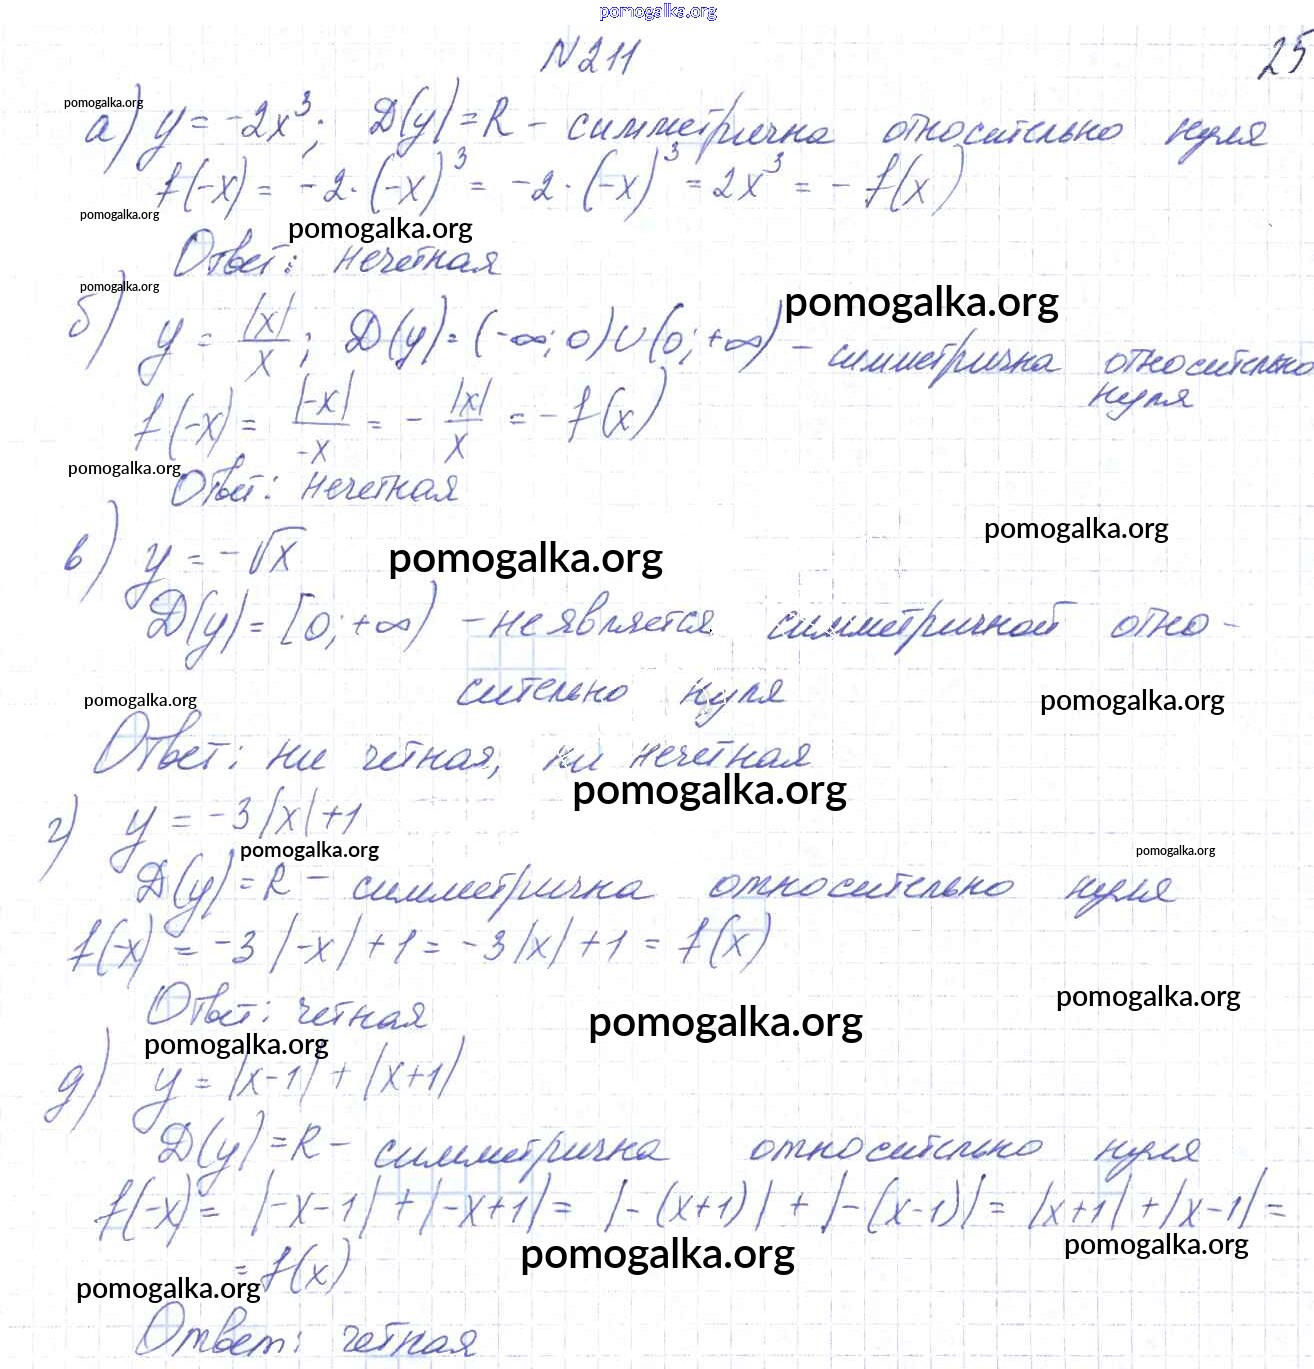 pomogalka.org
N 211
25
pomogalka.org
а) y = -2x³; D(y) = R - симметрична относительно нуля
f(-x) = -2·(-x)³ = -2·(-x)³ = 2x³ = -f(x)
pomogalka.org
pomogalka.org
Ответ: нечетная
pomogalka.org
pomogalka.org
б) y = |x|/x; D(y) = (-∞; 0)∪(0; +∞) - симметрична относительно
нуля
f(-x) = |-x|/-x = - |x|/x = -f(x)
pomogalka.org
Ответ: нечетная
pomogalka.org
в) y = -√x
pomogalka.org
D(y) = [0; +∞) - не является симметричной отно-
сительно нуля
pomogalka.org
pomogalka.org
Ответ: ни четная, ни нечетная
pomogalka.org
г) y = -3|x|+1
pomogalka.org
pomogalka.org
D(y) = R - симметрична относительно нуля
f(-x) = -3|-x|+1 = -3|x|+1 = f(x)
pomogalka.org
Ответ: четная
pomogalka.org
pomogalka.org
д) y = |x-1| + |x+1|
D(y) = R - симметрична относительно нуля
f(-x) = |-x-1| + |-x+1| = |-(x+1)| + |-(x-1)| = |x+1| + |x-1| =
pomogalka.org
pomogalka.org
= f(x)
pomogalka.org
Ответ: четная